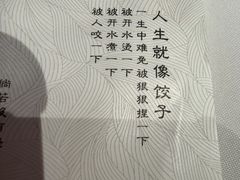 人生就像饺子
一生中难免被狠狠捏一下
被开水烫一下
被开水煮一下
被人咬一下
尚若